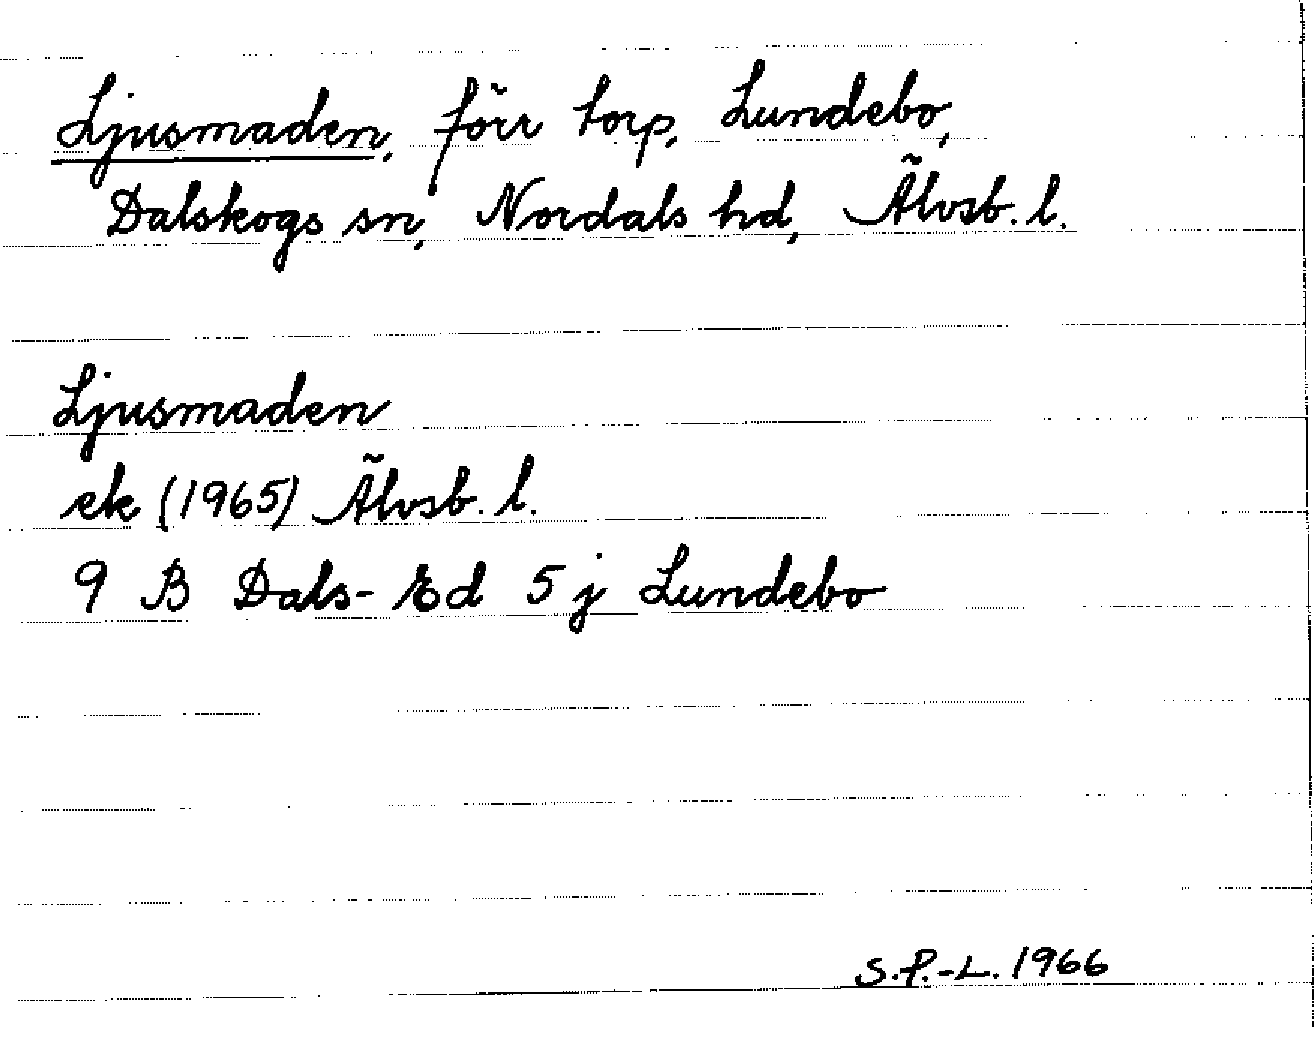 Ljusmaden, förr torp, Lundebo,
Dalskogs sn, Nordals hd, Älvsb. l.
Ljusmaden
ek (1965) Älvsb. l.
9 B Dals-Ed 5 j Lundebo
S.P.-L. 1966